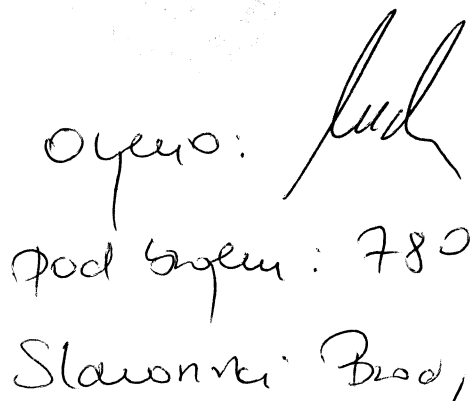 Ovjerio:
pod brojem: 780
Slavonski Brod,